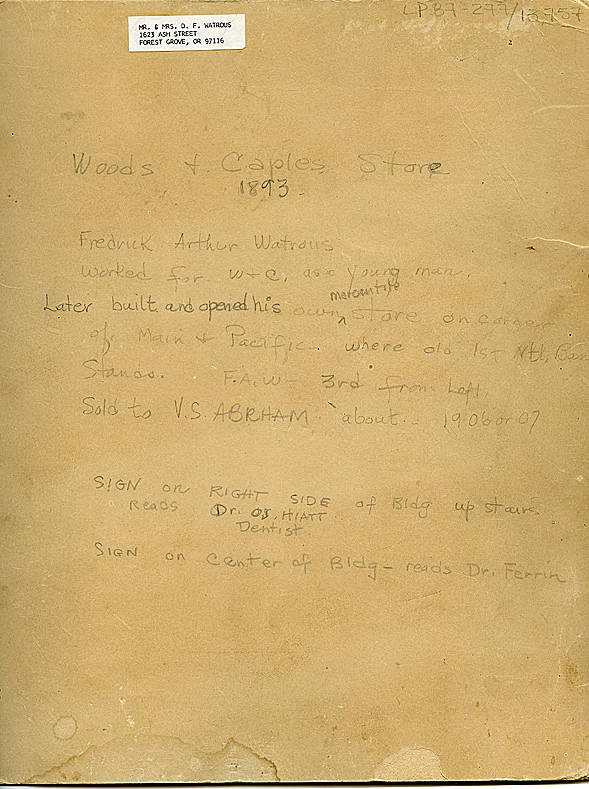 LP87-277/13757
MR. & MRS. D. F. WATROUS
1623 ASH STREET
FOREST GROVE, OR 97116
Woods + Caples Store
1893.
Fredrick Arthur Watrous
worked for W+C, as a young man.
Later built and opened his own mercantile store on corner
of Main + Pacific. where old 1st Ntl, Ban
Stands. F.A.W- 3rd from Left.
Sold to V.S. ABRHAM about. 1906 or 07
SIGN on RIGHT SIDE of Bldg up stairs
Reads Dr. HIATT
Dentist.
SIGN on center of Bldg - reads Dr. Ferrin